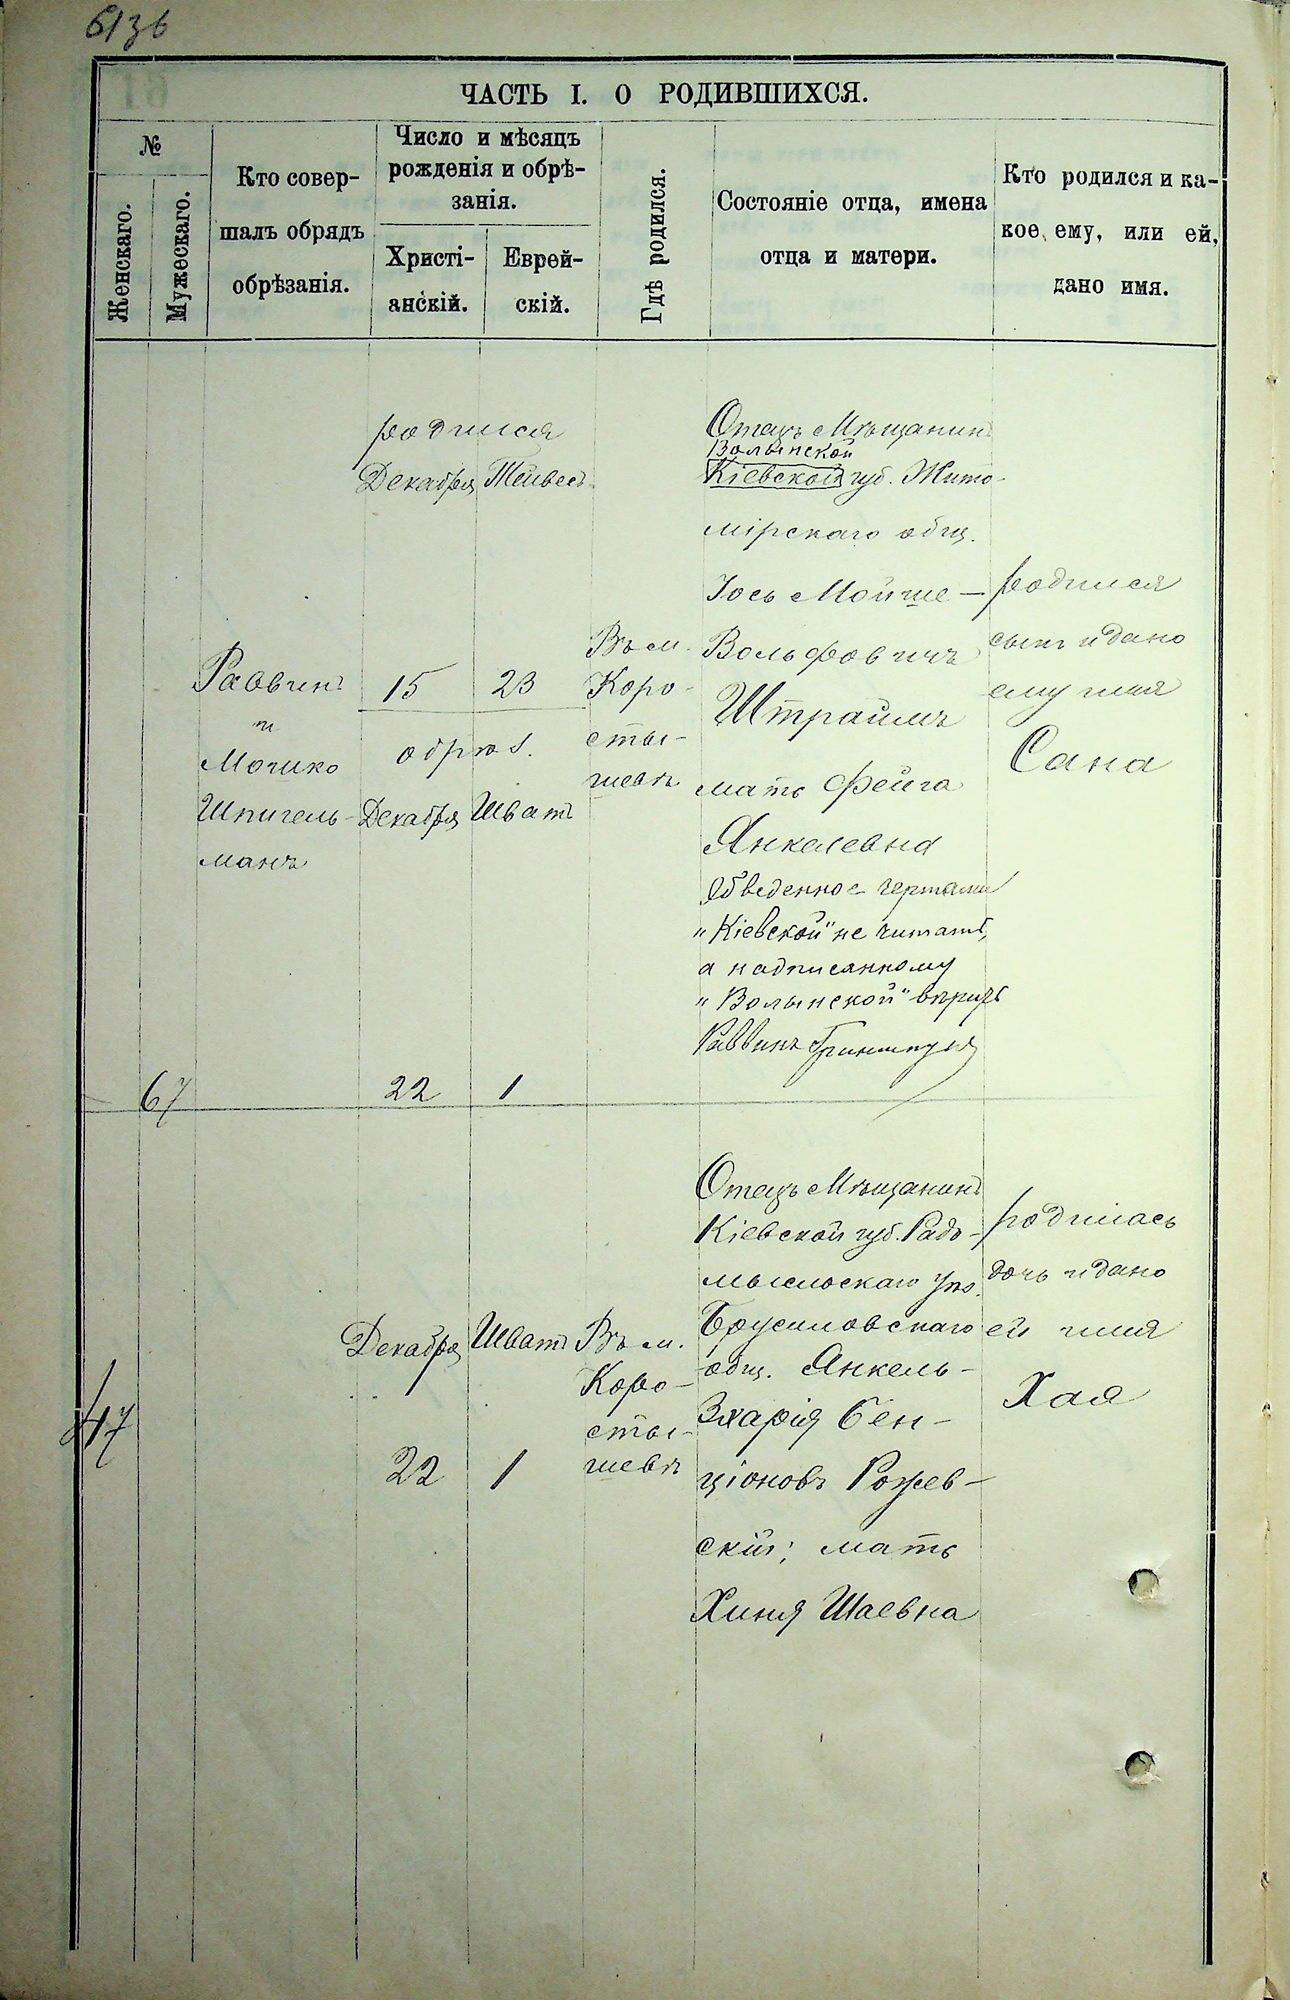 6136
ЧАСТЬ I. О РОДИВШИХСЯ.
№
Женскаго.
Мужескаго.
Кто совер-
шалъ обрядъ
обрѣзанія.
Число и мѣсяцъ
рожденія и обрѣ-
занія.
Христі-
анскій.
Еврей-
скій.
Гдѣ родился.
Состояніе отца, имена
отца и матери.
Кто родился и ка-
кое ему, или ей,
дано имя.
67
Раввинъ
и
Мошко
Шпигель-
манъ
родился
Декабря Тейвесъ
15 23
обрѣз.
Декабря Шватъ
22 1
Въ м.
Коро-
сты-
шевѣ
Отецъ Мѣщанинъ
Волынской
Кіевской губ. Жито-
мірскаго общ.
Іось Мойше-
Вольфовичъ
Штраймъ
мать Фейга
Янкелевна
Обведенное чертами
"Кіевской" не читать,
а надписанному
"Волынской" вѣрить
Раввинъ
родился
сынъ и дано
ему имя
Сана
47
Декабря Шватъ
22 1
Въ м.
Коро-
сты-
шевѣ
Отецъ Мѣщанинъ
Кіевской губ. Радо-
мысльскаго уѣз.
Брусиловскаго
общ. Янкель-
Захарія Бен-
ціоновъ Рожев-
скій; мать
Хиня Шаевна
родилась
дочь и дано
ей имя
Хая